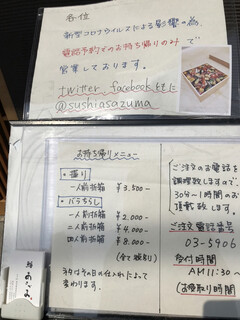 各位
新型コロナウイルスによる影響の為、
電話予約でのお持ち帰りのみで
営業しております。
twitter facebook 共に
@sushiasazuma
お持ち帰りメニュー
・握り
一人前折箱 ¥3,500-
・バラちらし
一人前折箱 ¥2,000-
二人前折箱 ¥4,000-
四人前折箱 ¥8,000-
(全て税別)
ネタはその日の仕入れによって
変わります。
ご注文のお電話を
調理致しますので、
30分〜1時間のお
頂戴致し
ご注文電話番号
03-5906
受付時間
AM11:30〜
(お受取り時間
鮨